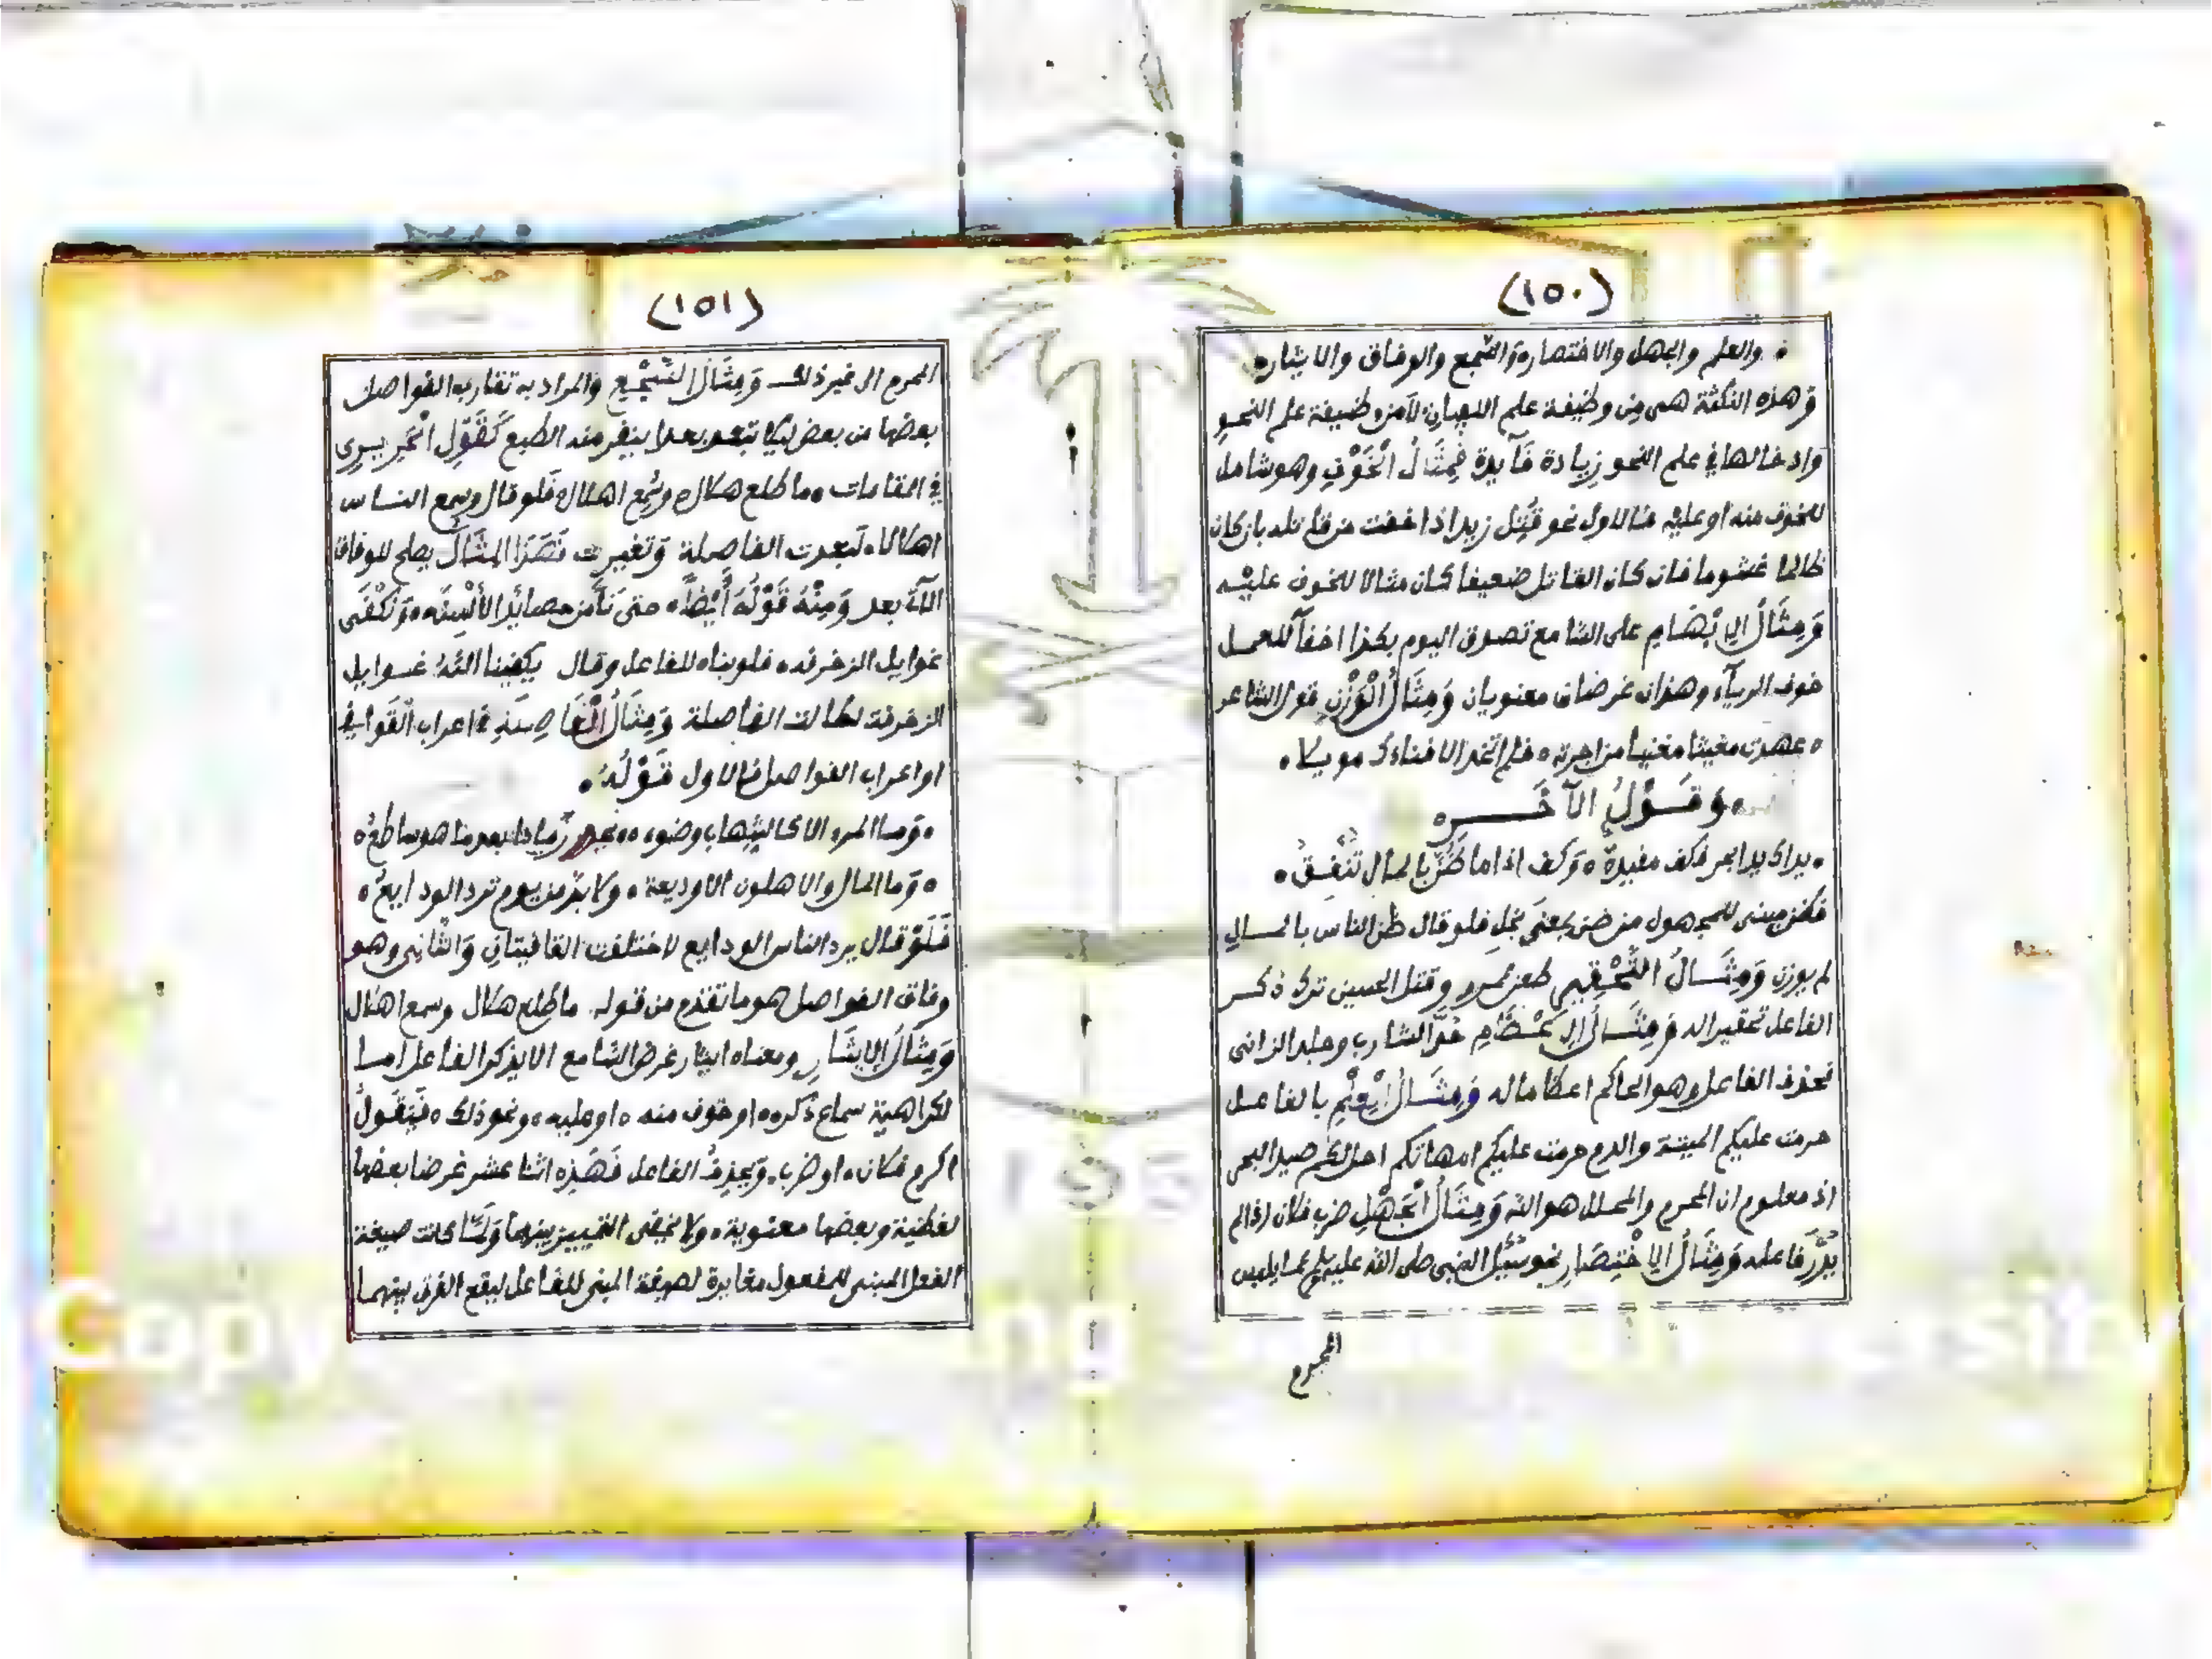 (١٥٠)
والعلم والجهل والاختصار والسجع والوفاق والايثار
وهذه النكتة هى من وظيفة علم البيان لا من وظيفة علم النحو
وادخالها في علم النحو زيادة فآيدة فمثال الخوف وهو شامل
للخوف منه او عليه فالاول نحو قتل زيد اذا خفت من قاتله بان كان
ظالما غشوما فان كان القاتل ضعيفا كان مثالا للخوف عليه
ومثال الابهام على السامع تصدق اليوم بكذا اخفآ للعمل
خوف الريآء وهذان غرضان معنويان ومثال الوزن قول الشاعر
عهدت مغيثا مغنيا من اجرته فلم اتخذ الا فناءك موئلا
وقول الآخر
يداك يدا مجد فكف مفيدة وكف اذا ما ضن بالمال تنفق
فضن مبنى للمجهول من ضن بمعنى بخل فلو قال ظن الناس بالمال
لم يوزن ومثال التحقير طعن عمر وقتل الحسين ترك ذكر
الفاعل تحقيرا له ومثال الاعظام حد الشارب وجلد الزانى
فحذف الفاعل وهو الحاكم اعظاما له ومثال العلم بالفاعل
حرمت عليكم الميتة والدم حرمت عليكم امهاتكم احل لكم صيد البحر
اذ معلوم ان المحرم والمحلل هو الله ومثال الجهل ضرب فلان اذا لم
يدر فاعله ومثال الاختصار نحو سئل النبى صلى الله عليه وسلم عما يلبس
المحرم
(١٥١)
المحرم الى غير ذلك ومثال السجع والمراد به تقارب الفواصل
بعضها من بعض ليلا تبعد بعدا ينفر منه الطبع كقول الحريرى
في المقامات ما طلع هلال وسمع اهلال فلو قال وسمع الناس
اهلالا لبعدت الفاصلة وتغيرت فهذا المثال يصلح للوفاق
الآتى بعد ومنه قوله ايضا حتى نأمن حصائد الألسنة ونكفى
غوايل الزخرفه فلو بناه للفاعل وقال يكفينا الله غوايل
الزخرفة لطالت الفاصلة ومثال الفاصلة في اعراب القوافي
او اعراب الفواصل فالاول قوله
وما المرء الا كالشهاب وضوءه يحور رمادا بعد ما هو ساطع
وما المال والاهلون الا وديعة ولا بد من يوم ترد الودايع
فلو قال يرد الناس الودايع لاختلفت القافيتان والثانى وهو
وفاق الفواصل هو ما تقدم من قوله ما طلع هلال وسمع اهلال
ومثال الايثار ومعناه ايثار غرض السامع الا يذكر الفاعل اما
لكراهية سماع ذكره او خوف منه او عليه ونحو ذلك فيقول
اكرم فلان او ضرب ويحذف الفاعل فهذه اثنا عشر غرضا بعضها
لفظية وبعضها معنوية ولا يخفى التمييز بينهما ولما كانت صيغة
الفعل المبنى للمفعول مغايرة لصيغة المبنى للفاعل ليقع الفرق بينهما